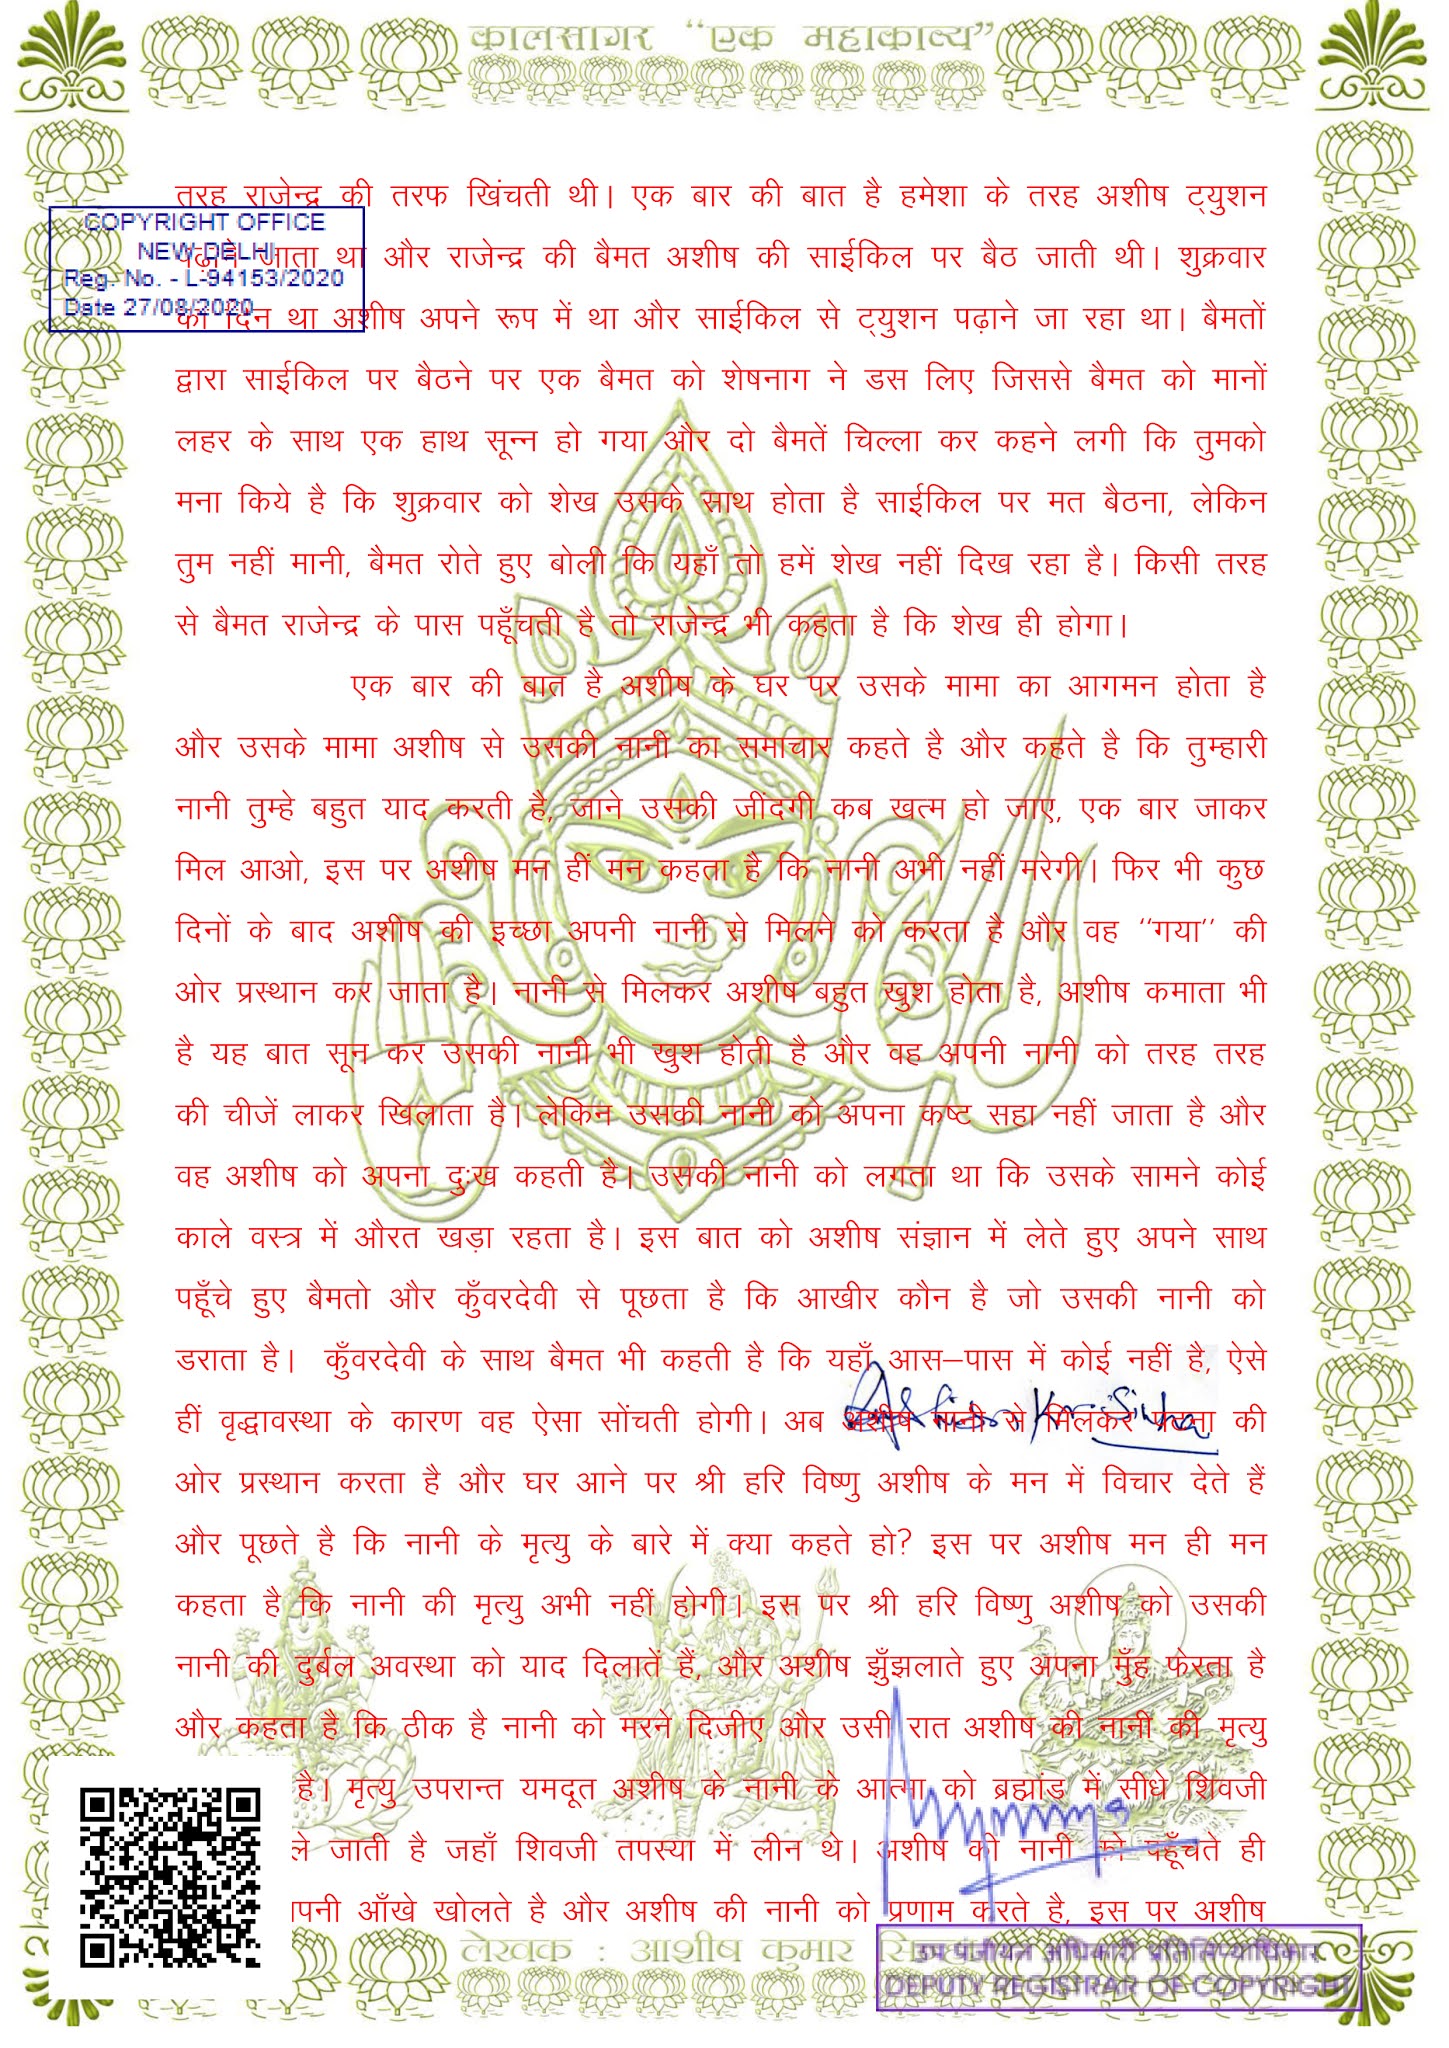 कालसागर “एक महाकाव्य”
तरह राजेन्द्र की तरफ खिंचती थी। एक बार की बात है हमेशा के तरह अशीष ट्युशन
COPYRIGHT OFFICE
NEW DELHI
Reg. No. - L-94153/2020
Date 27/08/2020
पढ़ाने जाता था और राजेन्द्र की बैमत अशीष की साईकिल पर बैठ जाती थी। शुक्रवार
का दिन था अशीष अपने रूप में था और साईकिल से ट्युशन पढ़ाने जा रहा था। बैमतों
द्वारा साईकिल पर बैठने पर एक बैमत को शेषनाग ने डस लिए जिससे बैमत को मानों
लहर के साथ एक हाथ सून्न हो गया और दो बैमतें चिल्ला कर कहने लगी कि तुमको
मना किये है कि शुक्रवार को शेख उसके साथ होता है साईकिल पर मत बैठना, लेकिन
तुम नहीं मानी, बैमत रोते हुए बोली कि यहाँ तो हमें शेख नहीं दिख रहा है। किसी तरह
से बैमत राजेन्द्र के पास पहूँचती है तो राजेन्द्र भी कहता है कि शेख ही होगा।
एक बार की बात है अशीष के घर पर उसके मामा का आगमन होता है
और उसके मामा अशीष से उसकी नानी का समाचार कहते है और कहते है कि तुम्हारी
नानी तुम्हे बहुत याद करती है, जाने उसकी जींदगी कब खत्म हो जाए, एक बार जाकर
मिल आओ, इस पर अशीष मन हीं मन कहता है कि नानी अभी नहीं मरेगी। फिर भी कुछ
दिनों के बाद अशीष की इच्छा अपनी नानी से मिलने को करता है और वह ‘‘गया’’ की
ओर प्रस्थान कर जाता है। नानी से मिलकर अशीष बहुत खुश होता है, अशीष कमाता भी
है यह बात सून कर उसकी नानी भी खुश होती है और वह अपनी नानी को तरह तरह
की चीजें लाकर खिलाता है। लेकिन उसकी नानी को अपना कष्ट सहा नहीं जाता है और
वह अशीष को अपना दुःख कहती है। उसकी नानी को लगता था कि उसके सामने कोई
काले वस्त्र में औरत खड़ा रहता है। इस बात को अशीष संज्ञान में लेते हुए अपने साथ
पहूँचे हुए बैमतो और कुँवरदेवी से पूछता है कि आखीर कौन है जो उसकी नानी को
डराता है। कुँवरदेवी के साथ बैमत भी कहती है कि यहाँ आस–पास में कोई नहीं है, ऐसे
हीं वृद्धावस्था के कारण वह ऐसा सोंचती होगी। अब अशीष नानी से मिलकर पटना की
ओर प्रस्थान करता है और घर आने पर श्री हरि विष्णु अशीष के मन में विचार देते हैं
और पूछते है कि नानी के मृत्यु के बारे में क्या कहते हो? इस पर अशीष मन ही मन
कहता है कि नानी की मृत्यु अभी नहीं होगी। इस पर श्री हरि विष्णु अशीष को उसकी
नानी की दुर्बल अवस्था को याद दिलातें हैं, और अशीष झुँझलाते हुए अपना मुँह फेरता है
और कहता है कि ठीक है नानी को मरने दिजीए और उसी रात अशीष की नानी की मृत्यु
है। मृत्यु उपरान्त यमदूत अशीष के नानी के आत्मा को ब्रह्मांड में सीधे शिवजी
ले जाती है जहाँ शिवजी तपस्या में लीन थे। अशीष की नानी को पहूँचते ही
पनी आँखे खोलते है और अशीष की नानी को प्रणाम करते है, इस पर अशीष
लेखक : आशीष कुमार
उप पंजीयन अधिकारी प्रतिलिप्याधिकार
DEPUTY REGISTRAR OF COPYRIGHT